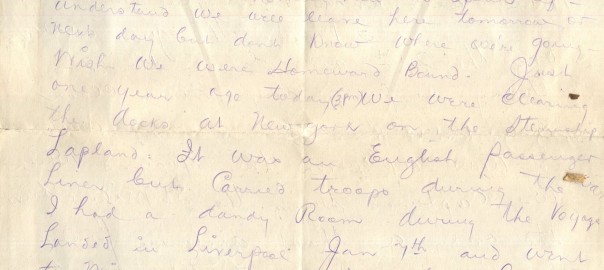 understand we will leave here tomorrow or
next day but don't know where we're going -
Wish we were Homeward Bound. Just
one year ago today we were clearing
the docks at New York on the Steamship
Lapland. It was an English Passenger
Liner but Carried troops during the war,
I had a dandy Room during the Voyage
Landed in Liverpool Jan 7th and went